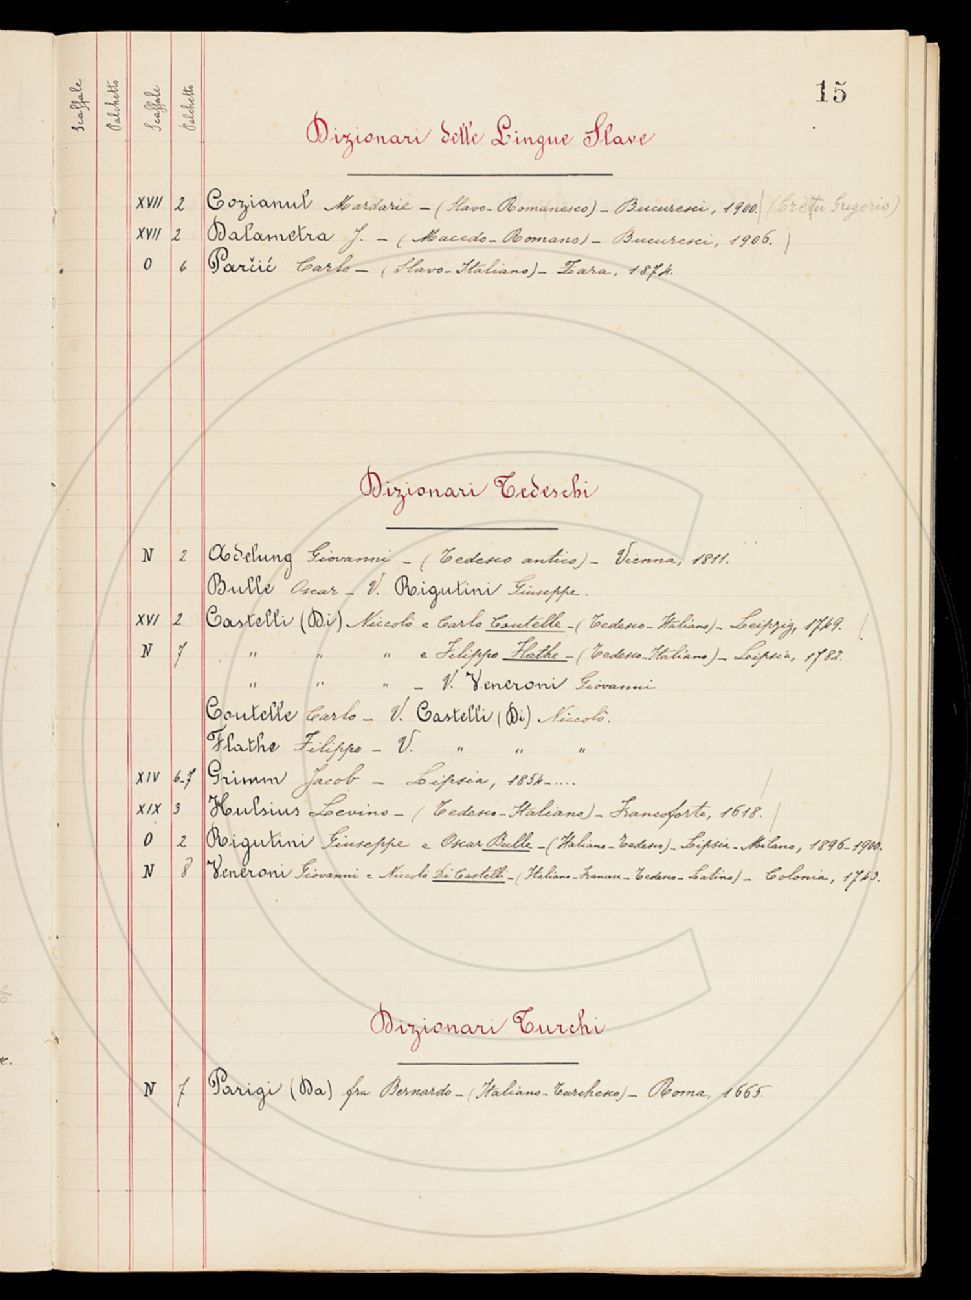 15
Scaffale Palchetto Scaffale Palchetto
Dizionari delle Lingue Slave
XVII 2 Cozianul Mardarie - (Slavo-Romanesco) - Bucuresci, 1900. (Crețu Gregorio)
XVII 2 Dalametra J. - (Macedo-Romano) - Bucuresci, 1906.
O 6 Parčić Carlo - (Slavo-Italiano) - Zara, 1874.
Dizionari Tedeschi
N 2 Adelung Giovanni - (Tedesco antico) - Vienna, 1811.
Bulle Oscar - V. Rigutini Giuseppe.
XVI 2 Castelli (Di) Niccolò e Carlo Coutelle - (Tedesco-Italiano) - Leipzig, 1749.
N 7 " " " e Filippo Flathe - (Tedesco-Italiano) - Lipsia, 1782.
" " " - V. Veneroni Giovanni
Coutelle Carlo - V. Castelli (Di) Niccolò.
Flathe Filippo - V. " " "
XIV 6-7 Grimm Jacob - Lipsia, 1854-....
XIX 3 Hulsius Levino - (Tedesco-Italiano) - Francoforte, 1618.
O 2 Rigutini Giuseppe e Oscar Bulle - (Italiano-Tedesco) - Lipsia-Milano, 1896-1900.
N 8 Veneroni Giovanni e Niccolò Di Castelli - (Italiano-Francese-Tedesco-Latino) - Colonia,
Dizionari Turchi
N 7 Parigi (Da) fra Bernardo - (Italiano-Turchesco) - Roma, 1665.